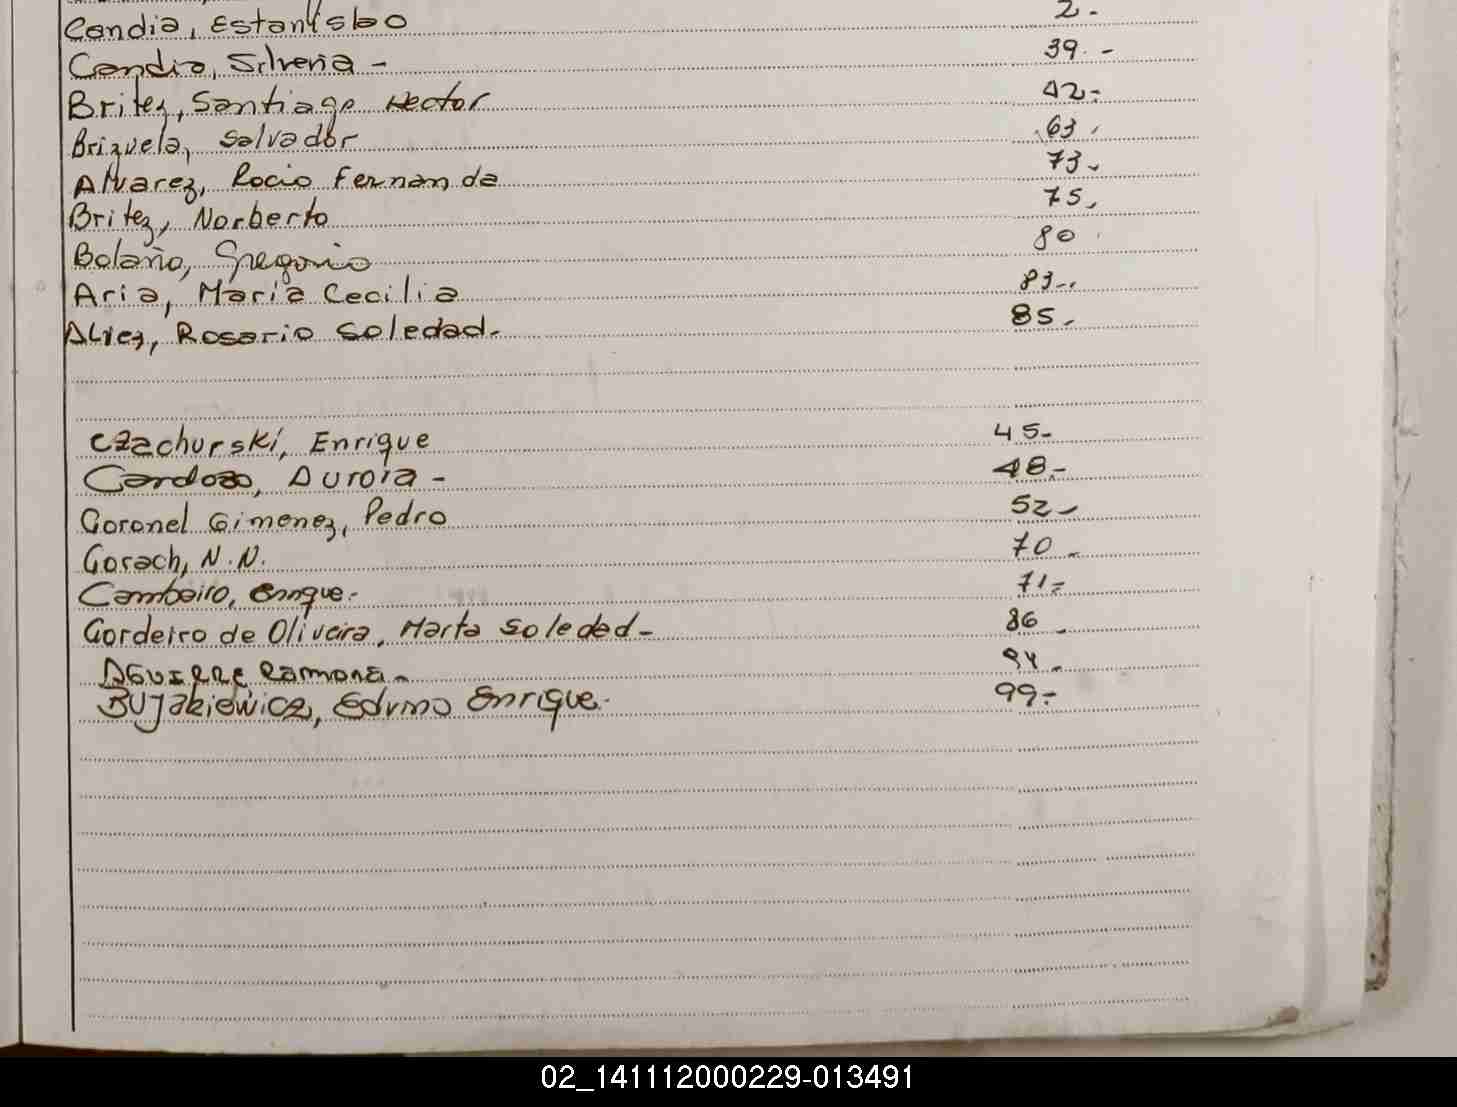 Candia, Estanislao 2.-
Candia, Silveria - 39.-
Britez, Santiago Hector 42.-
Brizuela, Salvador 63.
Alvarez, Rocio Fernanda 73.
Britez, Norberto 75.
Bolaño, Gregorio 80
Aria, Maria Cecilia 83..
Alvez, Rosario Soledad. 85.
Czachurski, Enrique 45-
Cardozo, Aurora - 48.-
Coronel Gimenez, Pedro 52-
Corach, N.N. 70.
Cambeiro, Enrique.- 71.-
Cordeiro de Oliveira, Marta Soledad - 86.
Aguirre Ramona. 94.
Bujakiewicz, Edumo Enrique.- 99.-
02_141112000229-013491